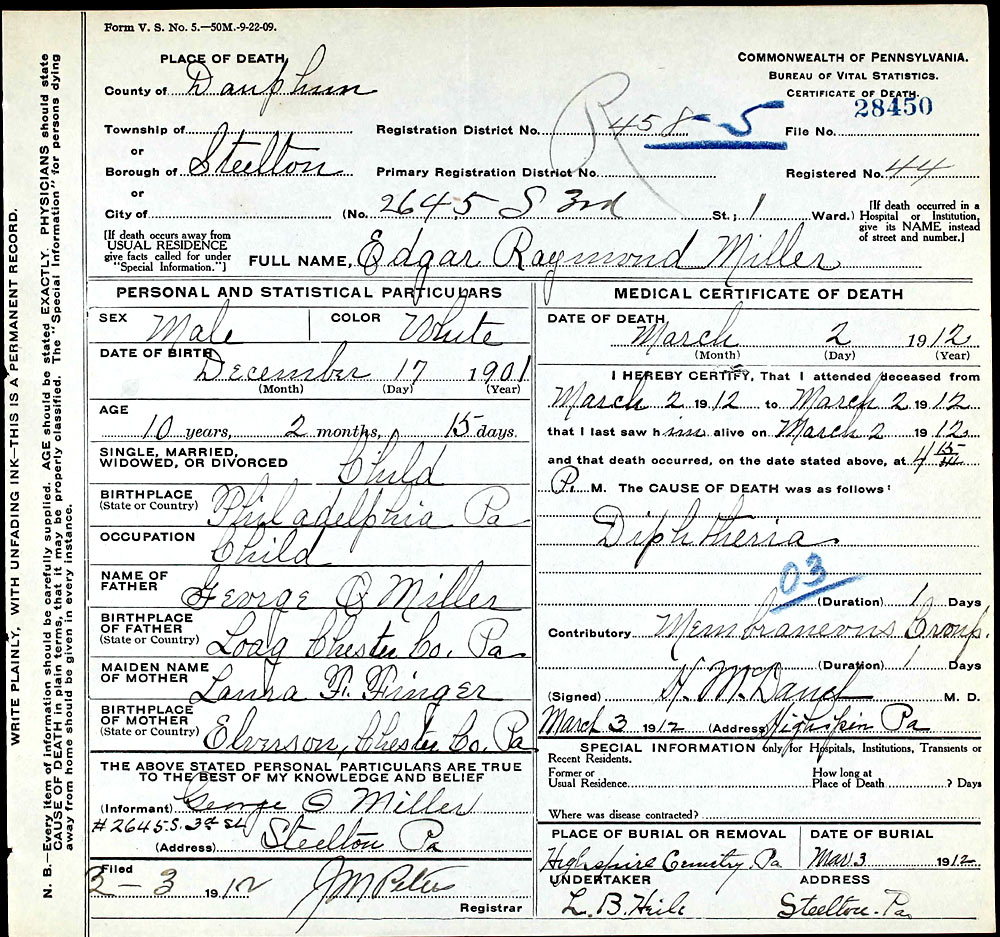 Form V. S. No. 5.—50M.-9-22-09.
PLACE OF DEATH,
County of Dauphin
Township of
or
Borough of Steelton
or
City of
[If death occurs away from
USUAL RESIDENCE
give facts called for under
"Special Information."]
Registration District No. 458-5
Primary Registration District No.
(No. 2645 S 3rd St.; 1 Ward.)
COMMONWEALTH OF PENNSYLVANIA.
BUREAU OF VITAL STATISTICS.
CERTIFICATE OF DEATH.
28450
File No.
Registered No. 44
[If death occurred in a
Hospital or Institution,
give its NAME instead
of street and number.]
FULL NAME, Edgar Raymond Miller
PERSONAL AND STATISTICAL PARTICULARS
SEX Male COLOR White
DATE OF BIRTH
December 17 1901
(Month) (Day) (Year)
AGE
10 years, 2 months, 15 days.
SINGLE, MARRIED,
WIDOWED, OR DIVORCED Child
BIRTHPLACE
(State or Country) Philadelphia Pa
OCCUPATION
Child
NAME OF
FATHER George O Miller
BIRTHPLACE
OF FATHER
(State or Country) Loag Chester Co. Pa
MAIDEN NAME
OF MOTHER Laura F. Finger
BIRTHPLACE
OF MOTHER
(State or Country) Elverson, Chester Co. Pa
THE ABOVE STATED PERSONAL PARTICULARS ARE TRUE
TO THE BEST OF MY KNOWLEDGE AND BELIEF
(Informant) George O Miller
#2645 S. 3rd St
(Address) Steelton Pa
Filed
3-3 1912 J M Peters
Registrar
MEDICAL CERTIFICATE OF DEATH
DATE OF DEATH
March 2 1912
(Month) (Day) (Year)
I HEREBY CERTIFY, That I attended deceased from
March 2 1912 to March 2 1912
that I last saw him alive on March 2 1912
and that death occurred, on the date stated above, at 4 15
P. M. The CAUSE OF DEATH was as follows:
Diphtheria
03
(Duration) 1 Days
Contributory Membraneous Croup.
(Duration) 1 Days
(Signed) M. D.
March 3 1912 (Address) Highspire Pa
SPECIAL INFORMATION only for Hospitals, Institutions, Transients or
Recent Residents.
Former or
Usual Residence.
How long at
Place of Death ? Days
Where was disease contracted?
PLACE OF BURIAL OR REMOVAL
Highspire Cemetry Pa
DATE OF BURIAL
Mar 3 1912
UNDERTAKER
L. B. Heile
ADDRESS
Steelton Pa
N. B.—Every item of information should be carefully supplied. AGE should be stated EXACTLY. PHYSICIANS should state
CAUSE OF DEATH in plain terms, that it may be properly classified. The "Special Information" for persons dying
away from home should be given in every instance.
WRITE PLAINLY, WITH UNFADING INK—THIS IS A PERMANENT RECORD.